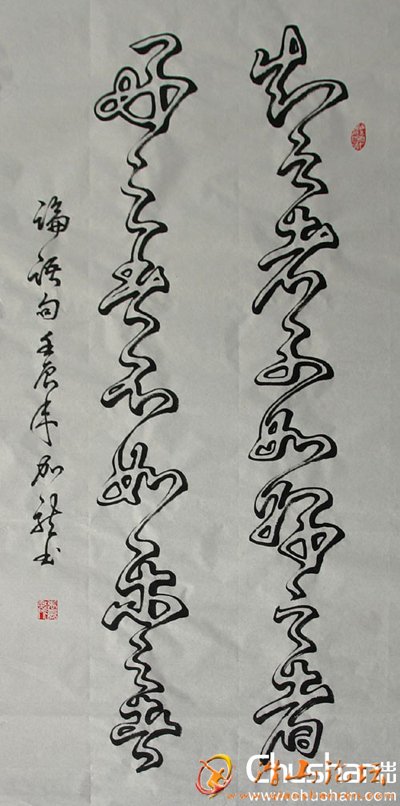 知之者不如好之者
好之者不如乐之者
论语句壬辰年加龙书
Chushan
www.chushan.com